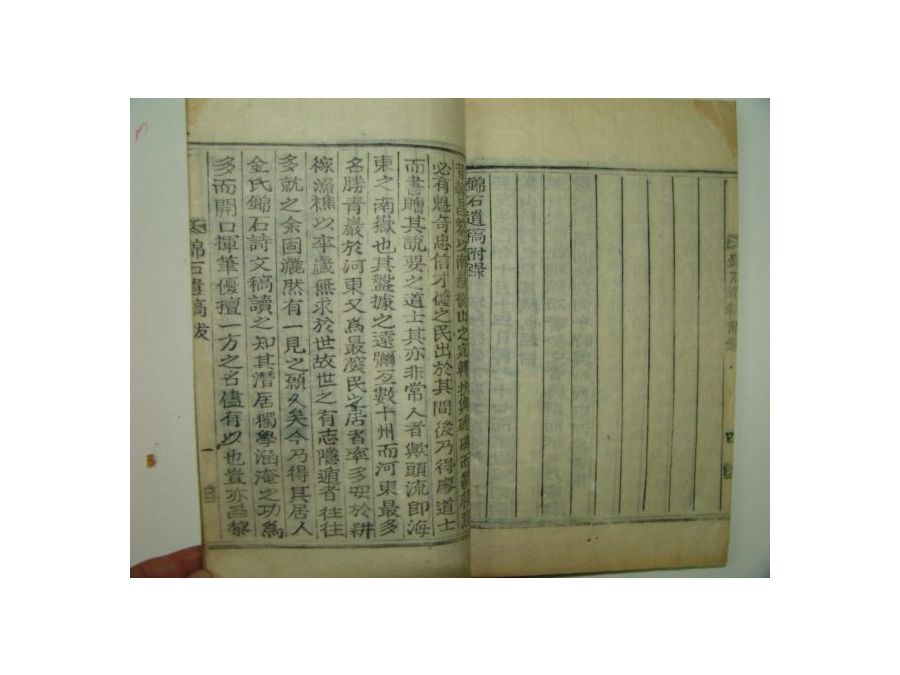 錦石遺稿附錄
四
昔韓昌黎以南嶽衡山之
必有魁奇忠信才德之民出於其間後乃得廖道士
而書贈其說要之道士其亦非常人者歟頭流即海
東之南嶽也其盤據之遠彌亙數十州而河東最多
名勝青巖於河東又爲最深民之居者率多安於耕
稼漁樵以卒歲無求於世故世之有志隱遁者往往
多就之余固灑然有一見之願久矣今乃得其居人
金氏錦石詩文稿讀之知其潛居獨學涵淹之功爲
多而開口揮筆優擅一方之名儘有以也豈亦昌黎
錦石遺稿跋
一